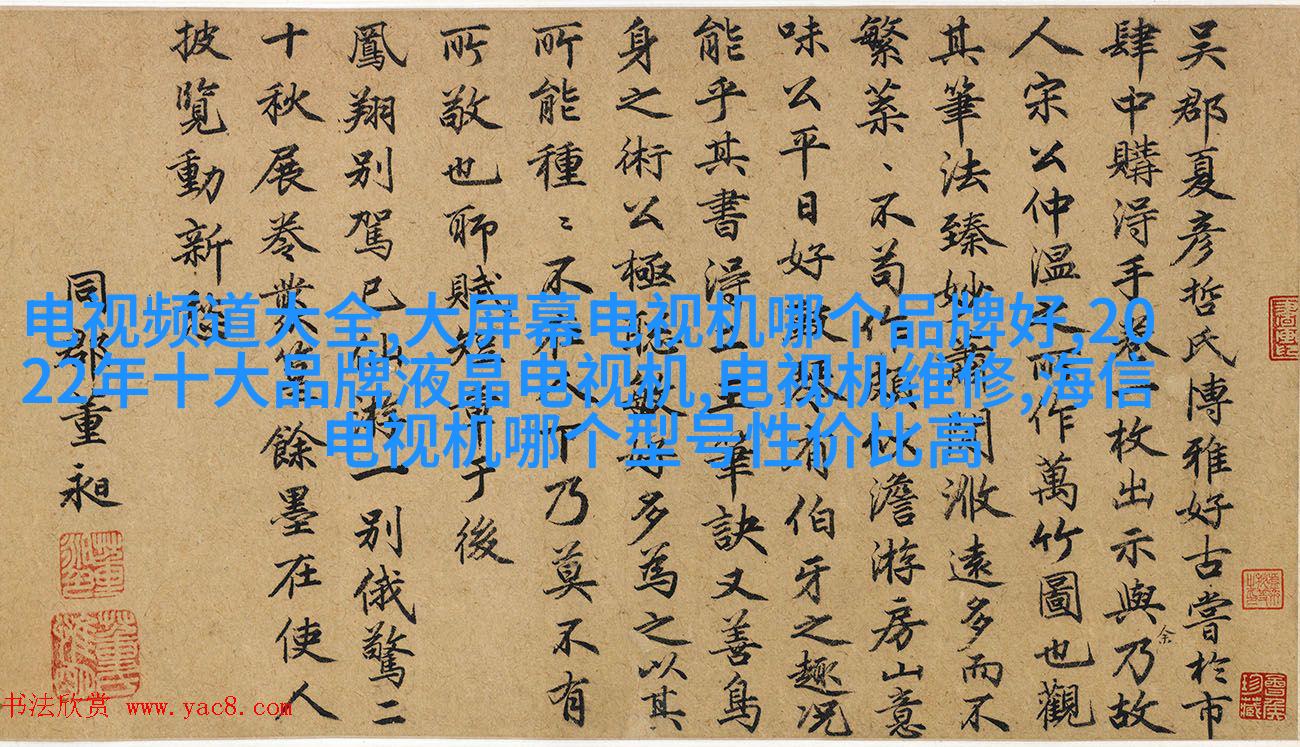 吳郡夏彥哲氏博雅好古嘗於市
肆中購得手卷一枚出示與余乃故
人宋公仲溫之所作萬竹圖也觀
其筆法臻妙蕭閒淡遠多而不
繁葉、不苟作頗似澹游房山意
味公平日好鼓琴有伯牙之趣况
能乎其書得二王筆訣又善鳥
身之術公極能多為之以其
所能種〻不乃莫不有
所敬也聊賦短于後
鳳翔別駕已仙游一別俄驚二
十秋展卷餘墨在使人
披覽動新愁
同郡董昶
电视频道大全,大屏幕电视机哪个品牌好,20
22年十大品牌液晶电视机,电视机维修,海信
电视机哪个型号性价比高
书法欣赏 www.yac8.com